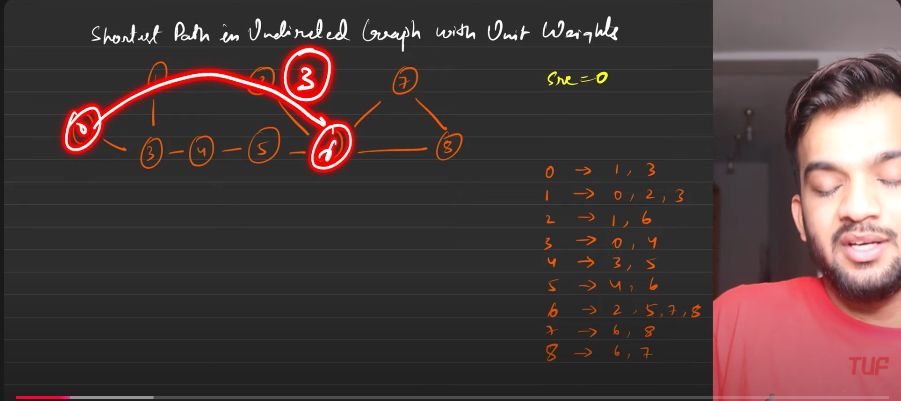 Shortest Path in Undirected Graph with Unit Weights
1 2 3 7
Src = 0
0
3 4 5 6 8
0 → 1, 3
1 → 0, 2, 3
2 → 1, 6
3 → 0, 4
4 → 3, 5
5 → 4, 6
6 → 2, 5, 7, 8
7 → 6, 8
8 → 6, 7
TUF